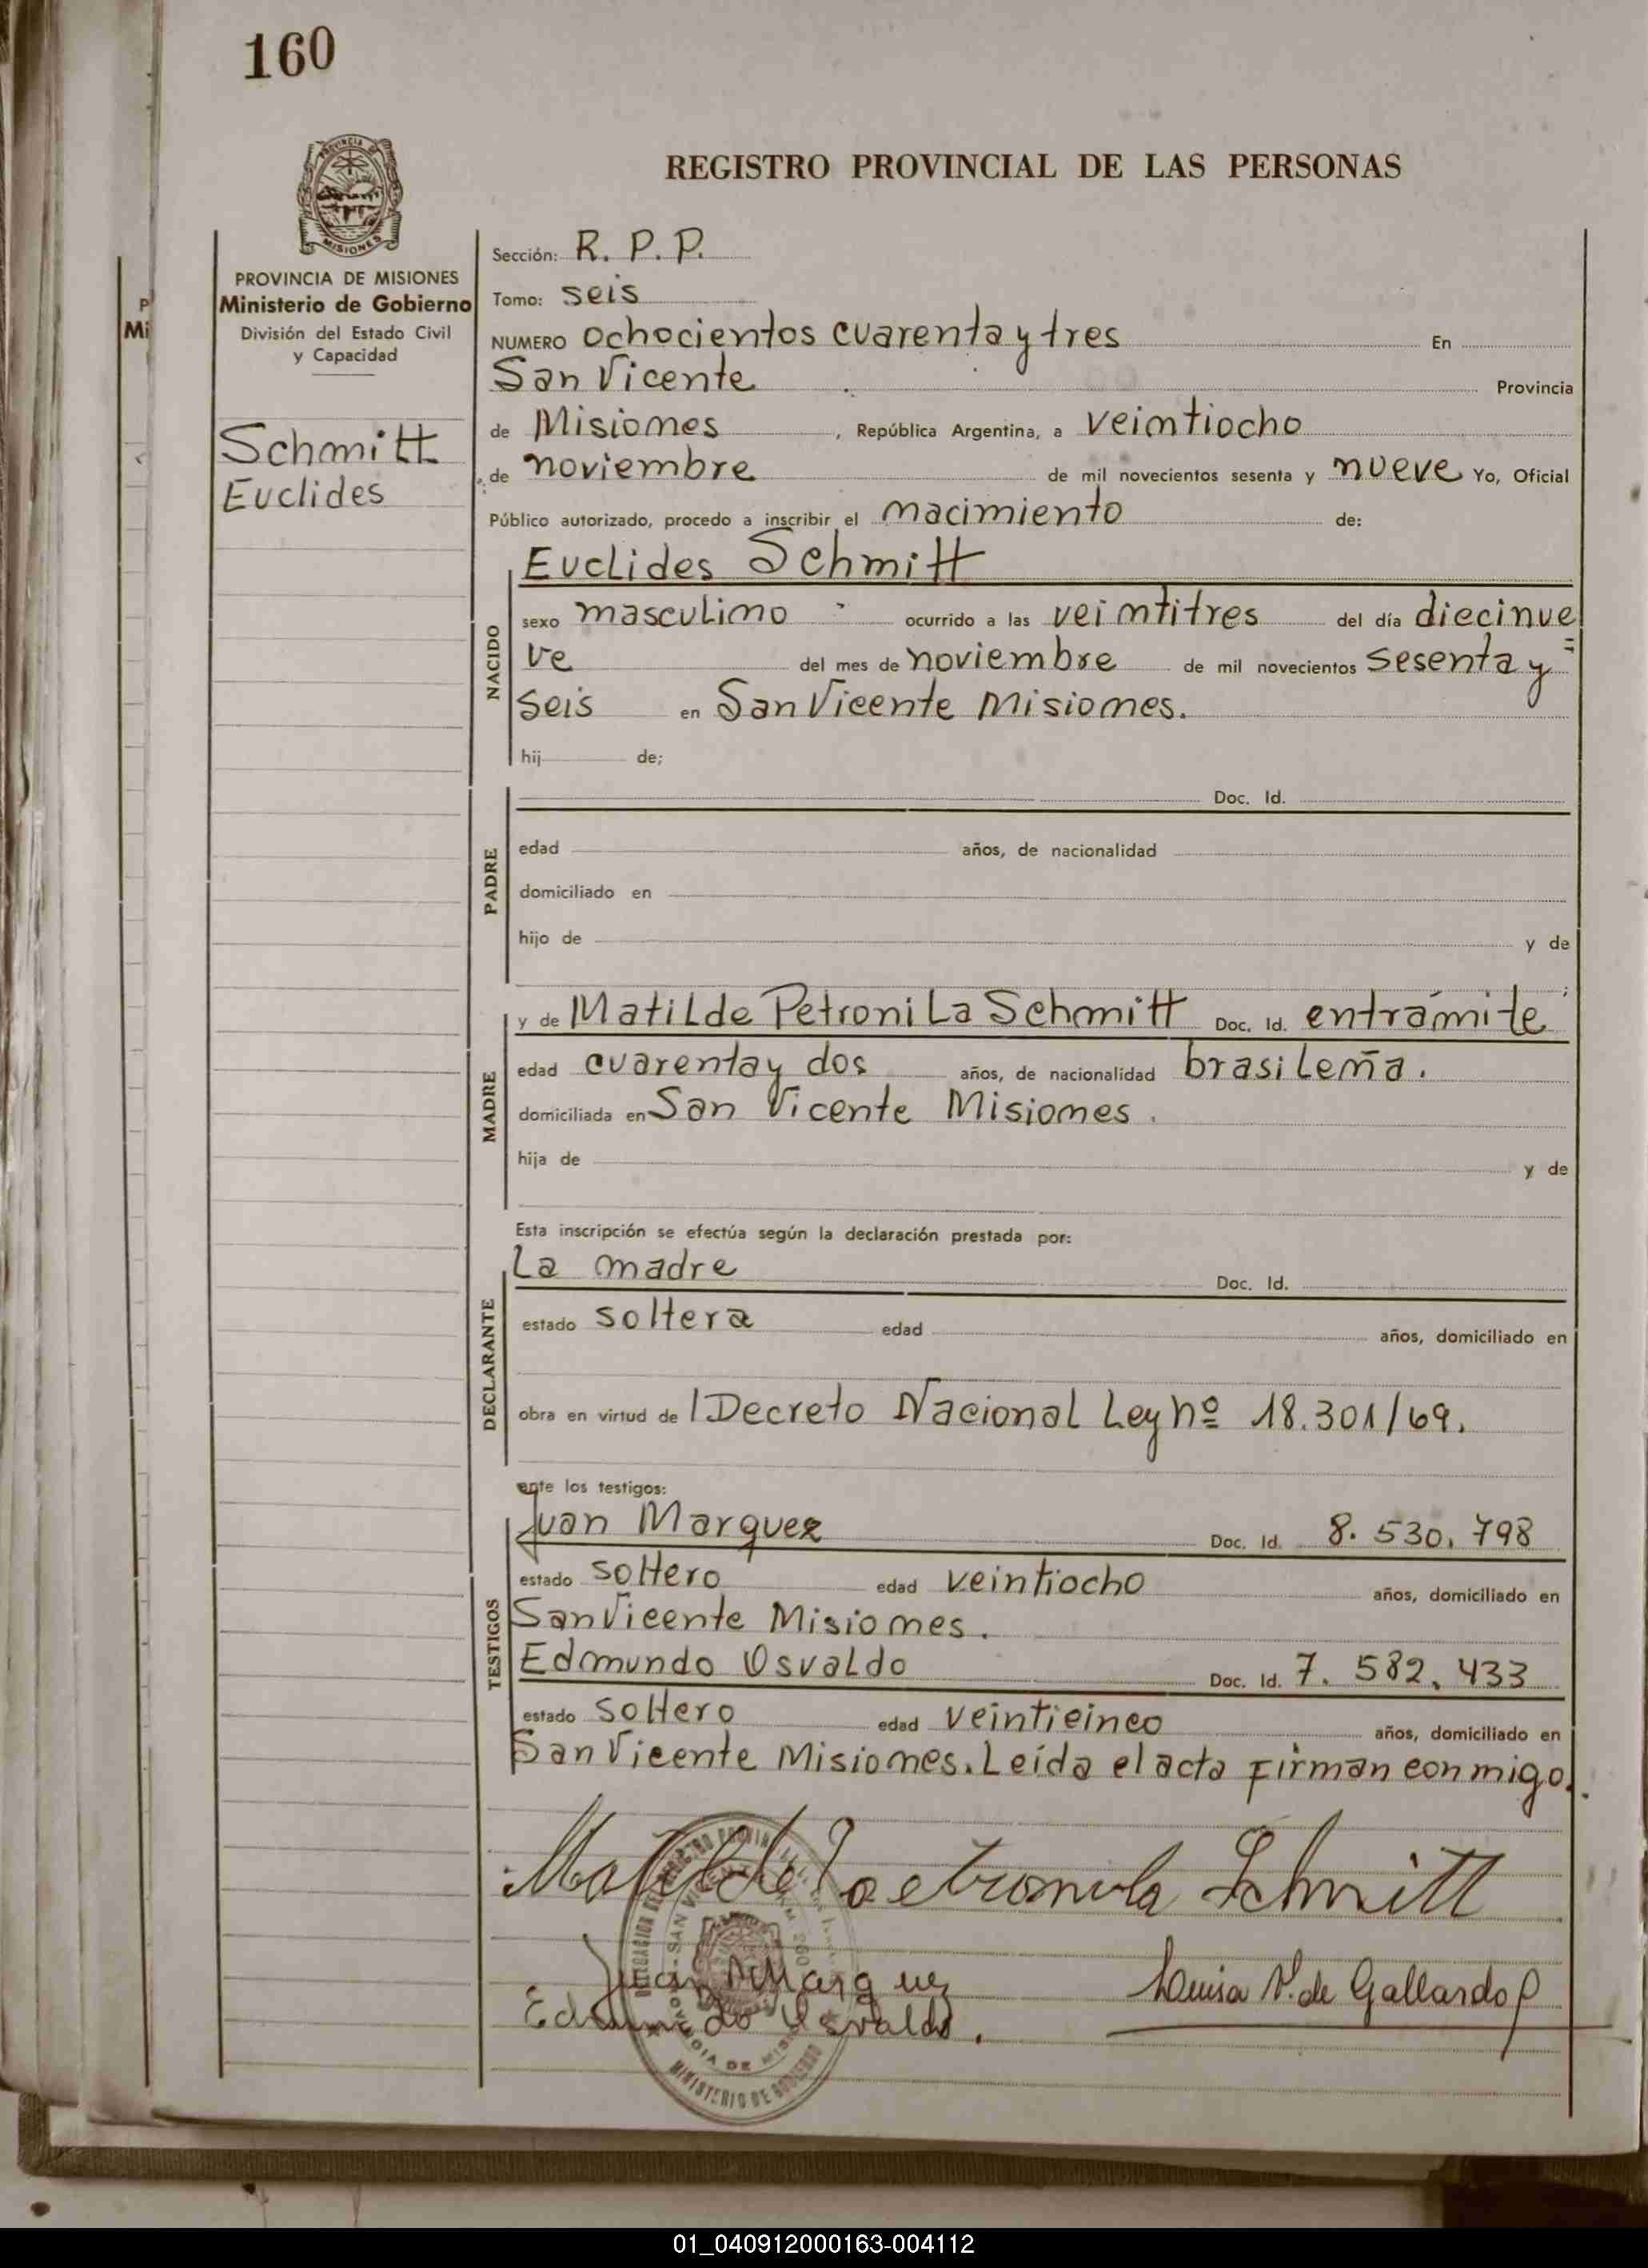 160
REGISTRO PROVINCIAL DE LAS PERSONAS
PROVINCIA
MISIONES
PROVINCIA DE MISIONES
Ministerio de Gobierno
División del Estado Civil
y Capacidad
Schmitt
Euclides
P
Mi
Sección: R. P. P.
Tomo: seis
NUMERO ochocientos cuarenta y tres En
San Vicente Provincia
de Misiones, República Argentina, a veintiocho
de noviembre de mil novecientos sesenta y nueve Yo, Oficial
Público autorizado, procedo a inscribir el nacimiento de:
NACIDO
Euclides Schmitt
sexo masculino ocurrido a las veintitres del día diecinue
ve del mes de noviembre de mil novecientos sesenta y =
seis en San Vicente Misiones.
hij de;
PADRE
Doc. Id.
edad años, de nacionalidad
domiciliado en
hijo de y de
MADRE
y de Matilde Petronila Schmitt Doc. Id. entrámite
edad cuarenta y dos años, de nacionalidad brasileña.
domiciliada en San Vicente Misiones.
hija de y de
Esta inscripción se efectúa según la declaración prestada por:
DECLARANTE
La madre Doc. Id.
estado soltera edad años, domiciliado en
obra en virtud de l Decreto Nacional Ley nº 18.301/69.
ante los testigos:
TESTIGOS
Juan Marquez Doc. Id. 8.530.798
estado soltero edad veintiocho años, domiciliado en
San Vicente Misiones.
Edmundo Osvaldo Doc. Id. 7.582.433
estado soltero edad veinticinco años, domiciliado en
San Vicente Misiones. Leída el acta firman conmigo.
Matilde Poetronila Schmitt
Juan Marquez
Luisa V. de Gallardo
Edmundo Osvaldo.
MINISTERIO DE GOBIERNO
01_040912000163-004112